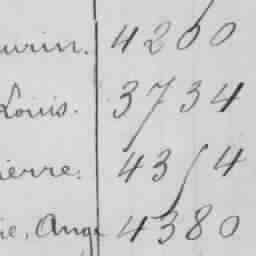 urin. 4200
Louis. 3734
ierre. 4354
ie, Ange 4380